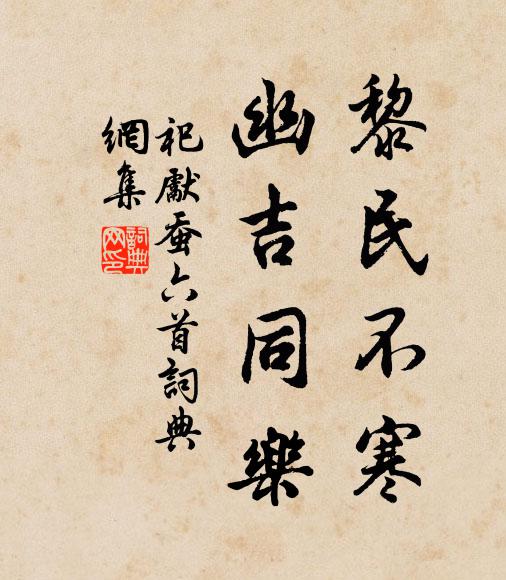 黎民不寒
幽吉同樂
祀獻蚕六首詞典
網集
詞典
网印